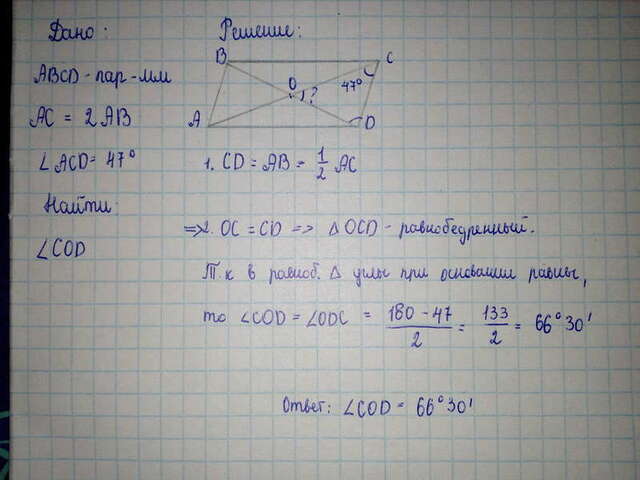 Дано:
ABCD - пар-мм
AC = 2AB
∠ACD = 47°
Найти:
∠COD
Решение:
B
C
O
47°
?
A
D
1. CD = AB = 1/2 AC
=> 2. OC = CD => Δ OCD - равнобедренный.
Т.к в равноб. Δ углы при основании равны,
то ∠COD = ∠ODC = 180 - 47 / 2 = 133 / 2 = 66° 30'
Ответ: ∠COD = 66° 30'